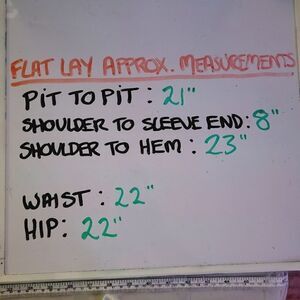 FLAT LAY APPROX. MEASUREMENTS
PIT TO PIT : 21"
SHOULDER TO SLEEVE END: 8"
SHOULDER TO HEM : 23"
WAIST : 22"
HIP: 22"